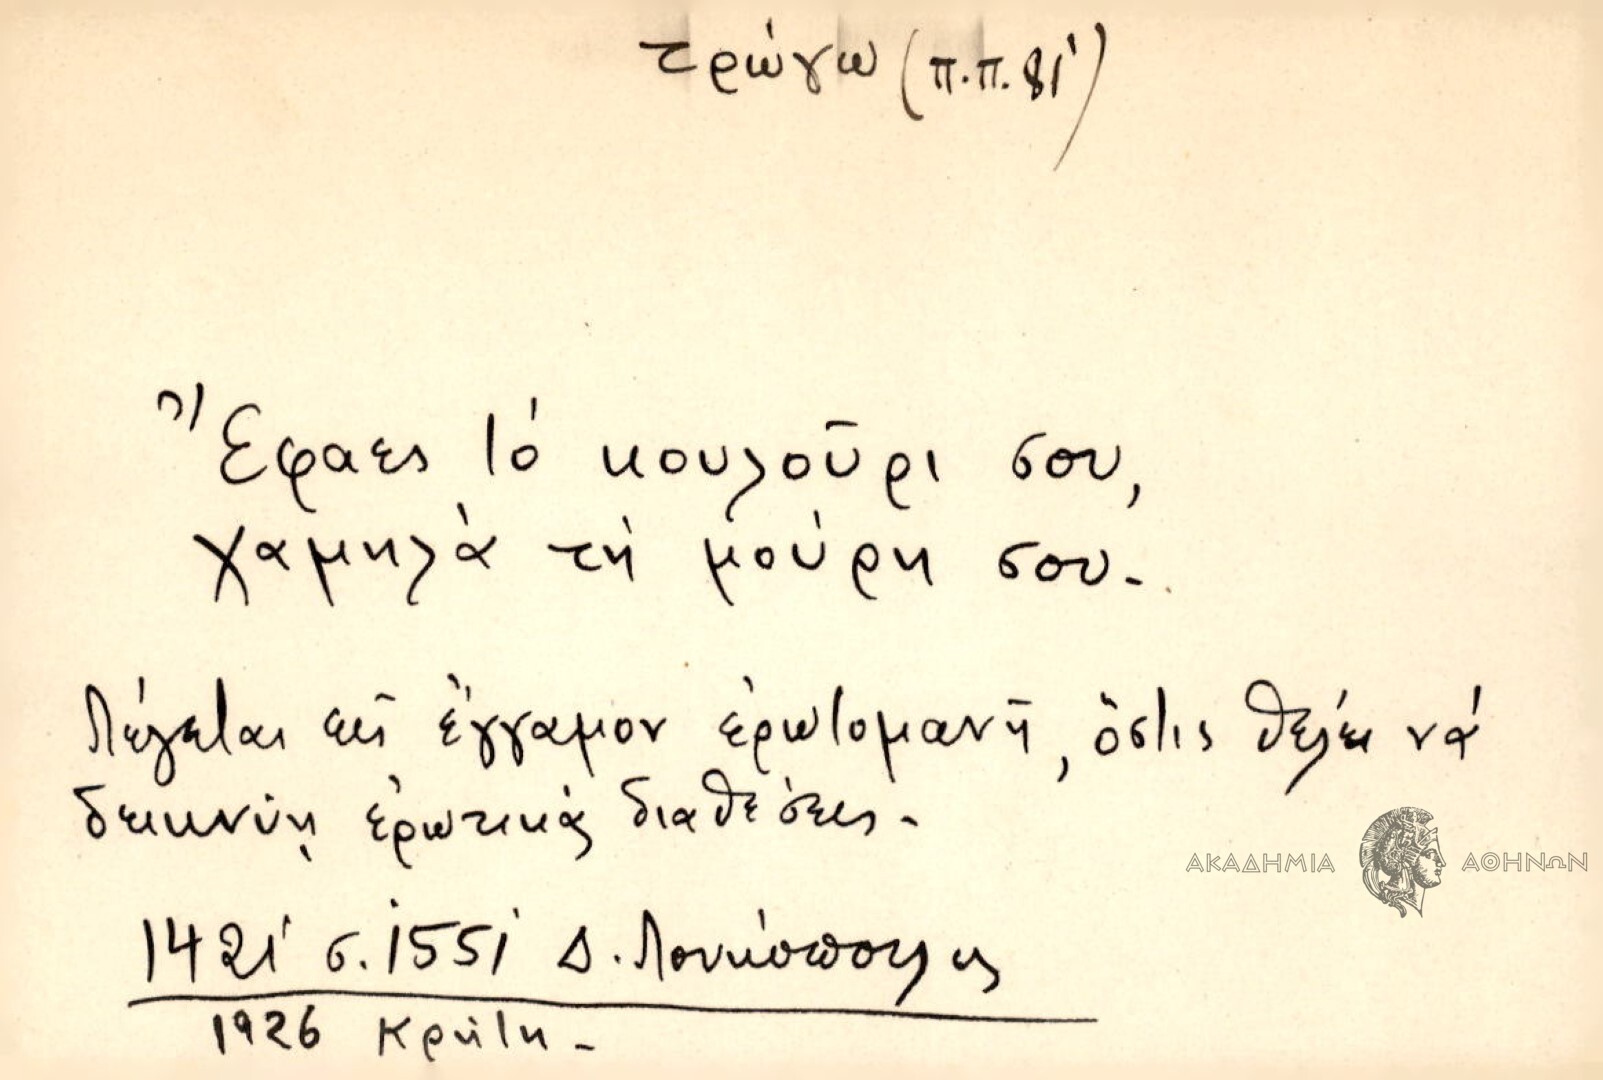 τρώγω (π.π. 81)
Ἔφαες τό κουλοῦρι σου,
χαμηλά τή μούρη σου.
Λέγεται εἰς ἔγγαμον ἐρωτομανῆ, ὅστις θέλει νά
δεικνύῃ ἐρωτικάς διαθέσεις.
1421 σ. 155 Δ. Λουκόπουλος
1926 Κρήτη.
ΑΚΑΔΗΜΙΑ ΑΘΗΝΩΝ